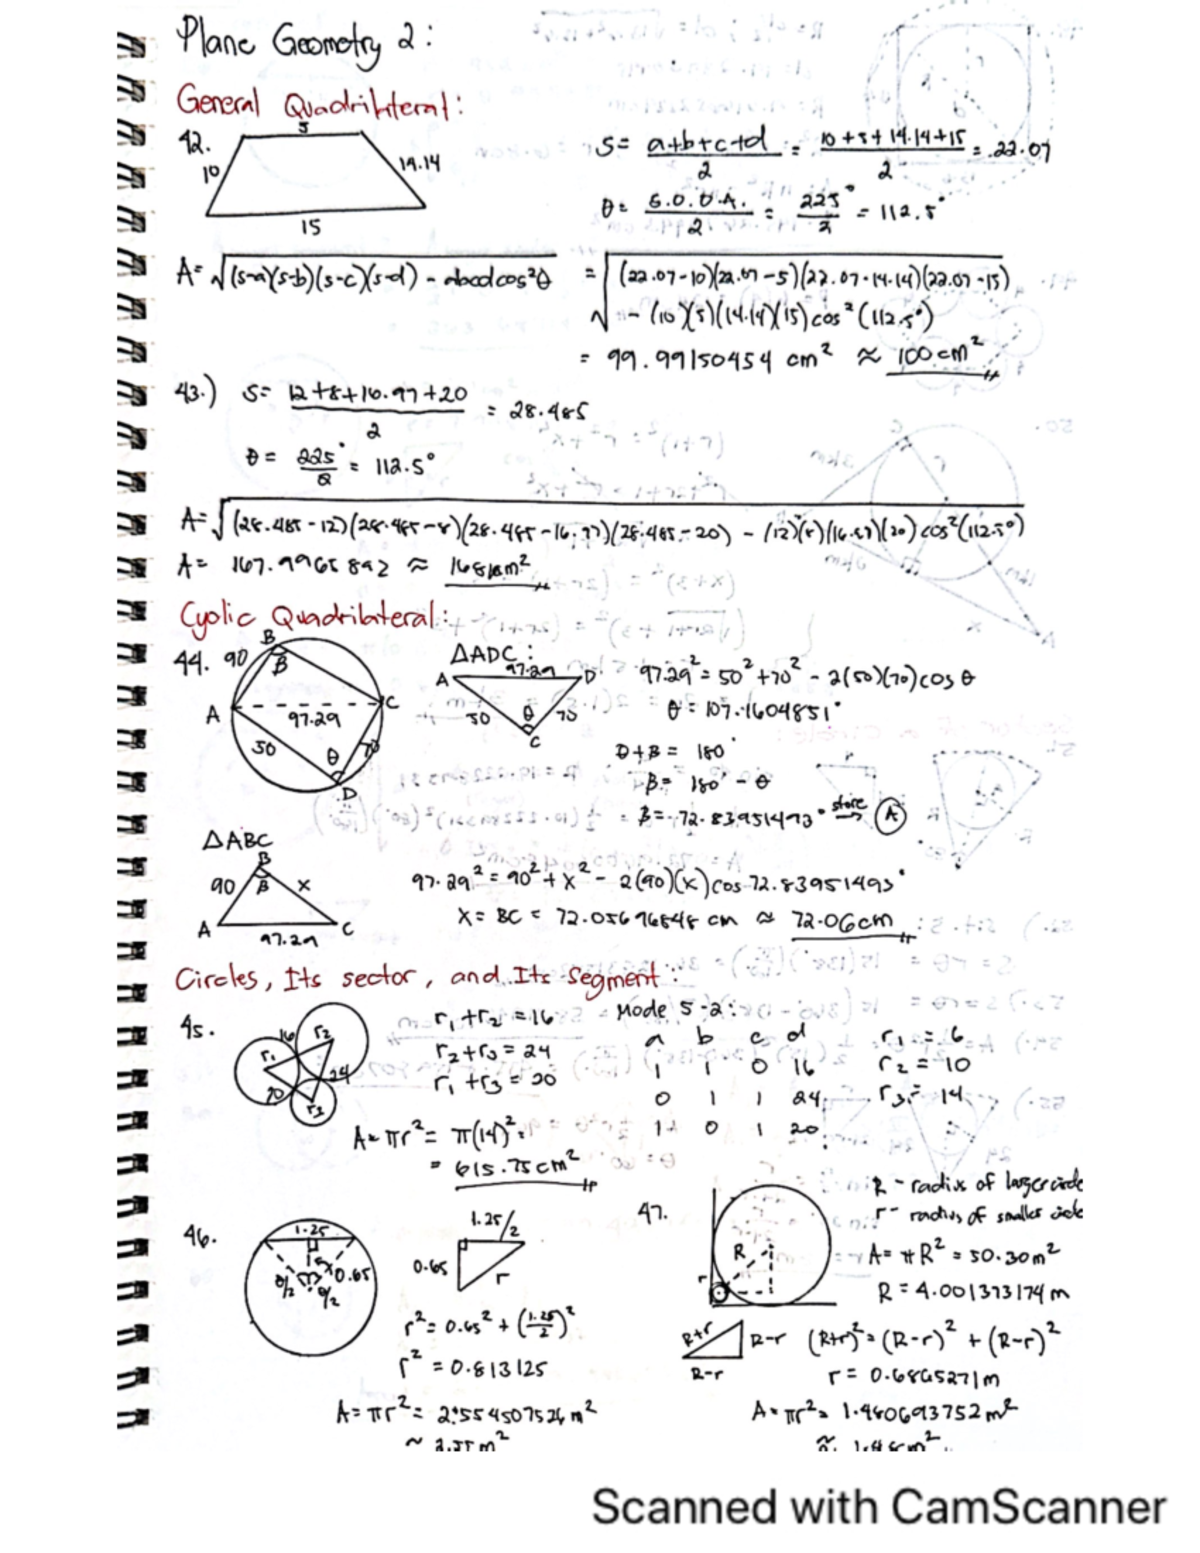 Plane Geometry 2:
General Quadrilateral:
42.
5
10
14.14
15
S = a+b+c+d / 2 = 10+5+14.14+15 / 2 = 22.07
θ = S.O.O.A. / 2 = 225° / 2 = 112.5°
A = √(s-a)(s-b)(s-c)(s-d) - abcd cos²θ = √(22.07-10)(22.07-5)(22.07-14.14)(22.07-15)
- (10)(5)(14.14)(15) cos²(112.5°)
= 99.99150454 cm² ≈ 100 cm²
43.) S = 12+8+16.97+20 / 2 = 28.485
θ = 225° / 2 = 112.5°
A = √(28.485-12)(28.485-8)(28.485-16.97)(28.485-20) - (12)(8)(16.97)(20) cos²(112.5°)
A = 167.9965892 ≈ 168 m²
Cyclic Quadrilateral:
44. 90
B
β
A
97.29
C
50
θ
70
D
ΔADC:
A 97.29 D
50 θ 70
C
97.29² = 50² + 70² - 2(50)(70) cos θ
θ = 107.1604851°
D+B = 180°
β = 180° - θ
β = 72.83951493° store → A
ΔABC
B
90 β x
A 97.29 C
97.29² = 90² + x² - 2(90)(x) cos 72.83951493°
x = BC = 72.05696848 cm ≈ 72.06 cm
Circles, Its sector, and Its Segment:
45.
16 r₂
r₁
24
20
r₃
r₁ + r₂ = 16
r₂ + r₃ = 24
r₁ + r₃ = 20
Mode 5-2:
a b c d
1 1 0 16
0 1 1 24
1 0 1 20
r₁ = 6
r₂ = 10
r₃ = 14
A = πr² = π(14)²
= 615.75 cm²
46.
1.25
θ/2 θ/2
0.65
1.25/2
0.65 r
r² = 0.65² + (1.25/2)²
r² = 0.813125
A = πr² = 2.554507526 m²
≈ 2.55 m²
47.
R
r
R - radius of larger circle
r - radius of smaller circle
A = πR² = 50.30 m²
R = 4.001373174 m
R+r R-r
R-r
(R+r)² = (R-r)² + (R-r)²
r = 0.6865271 m
A = πr² = 1.480693752 m²
≈ 1.48 m²
Scanned with CamScanner